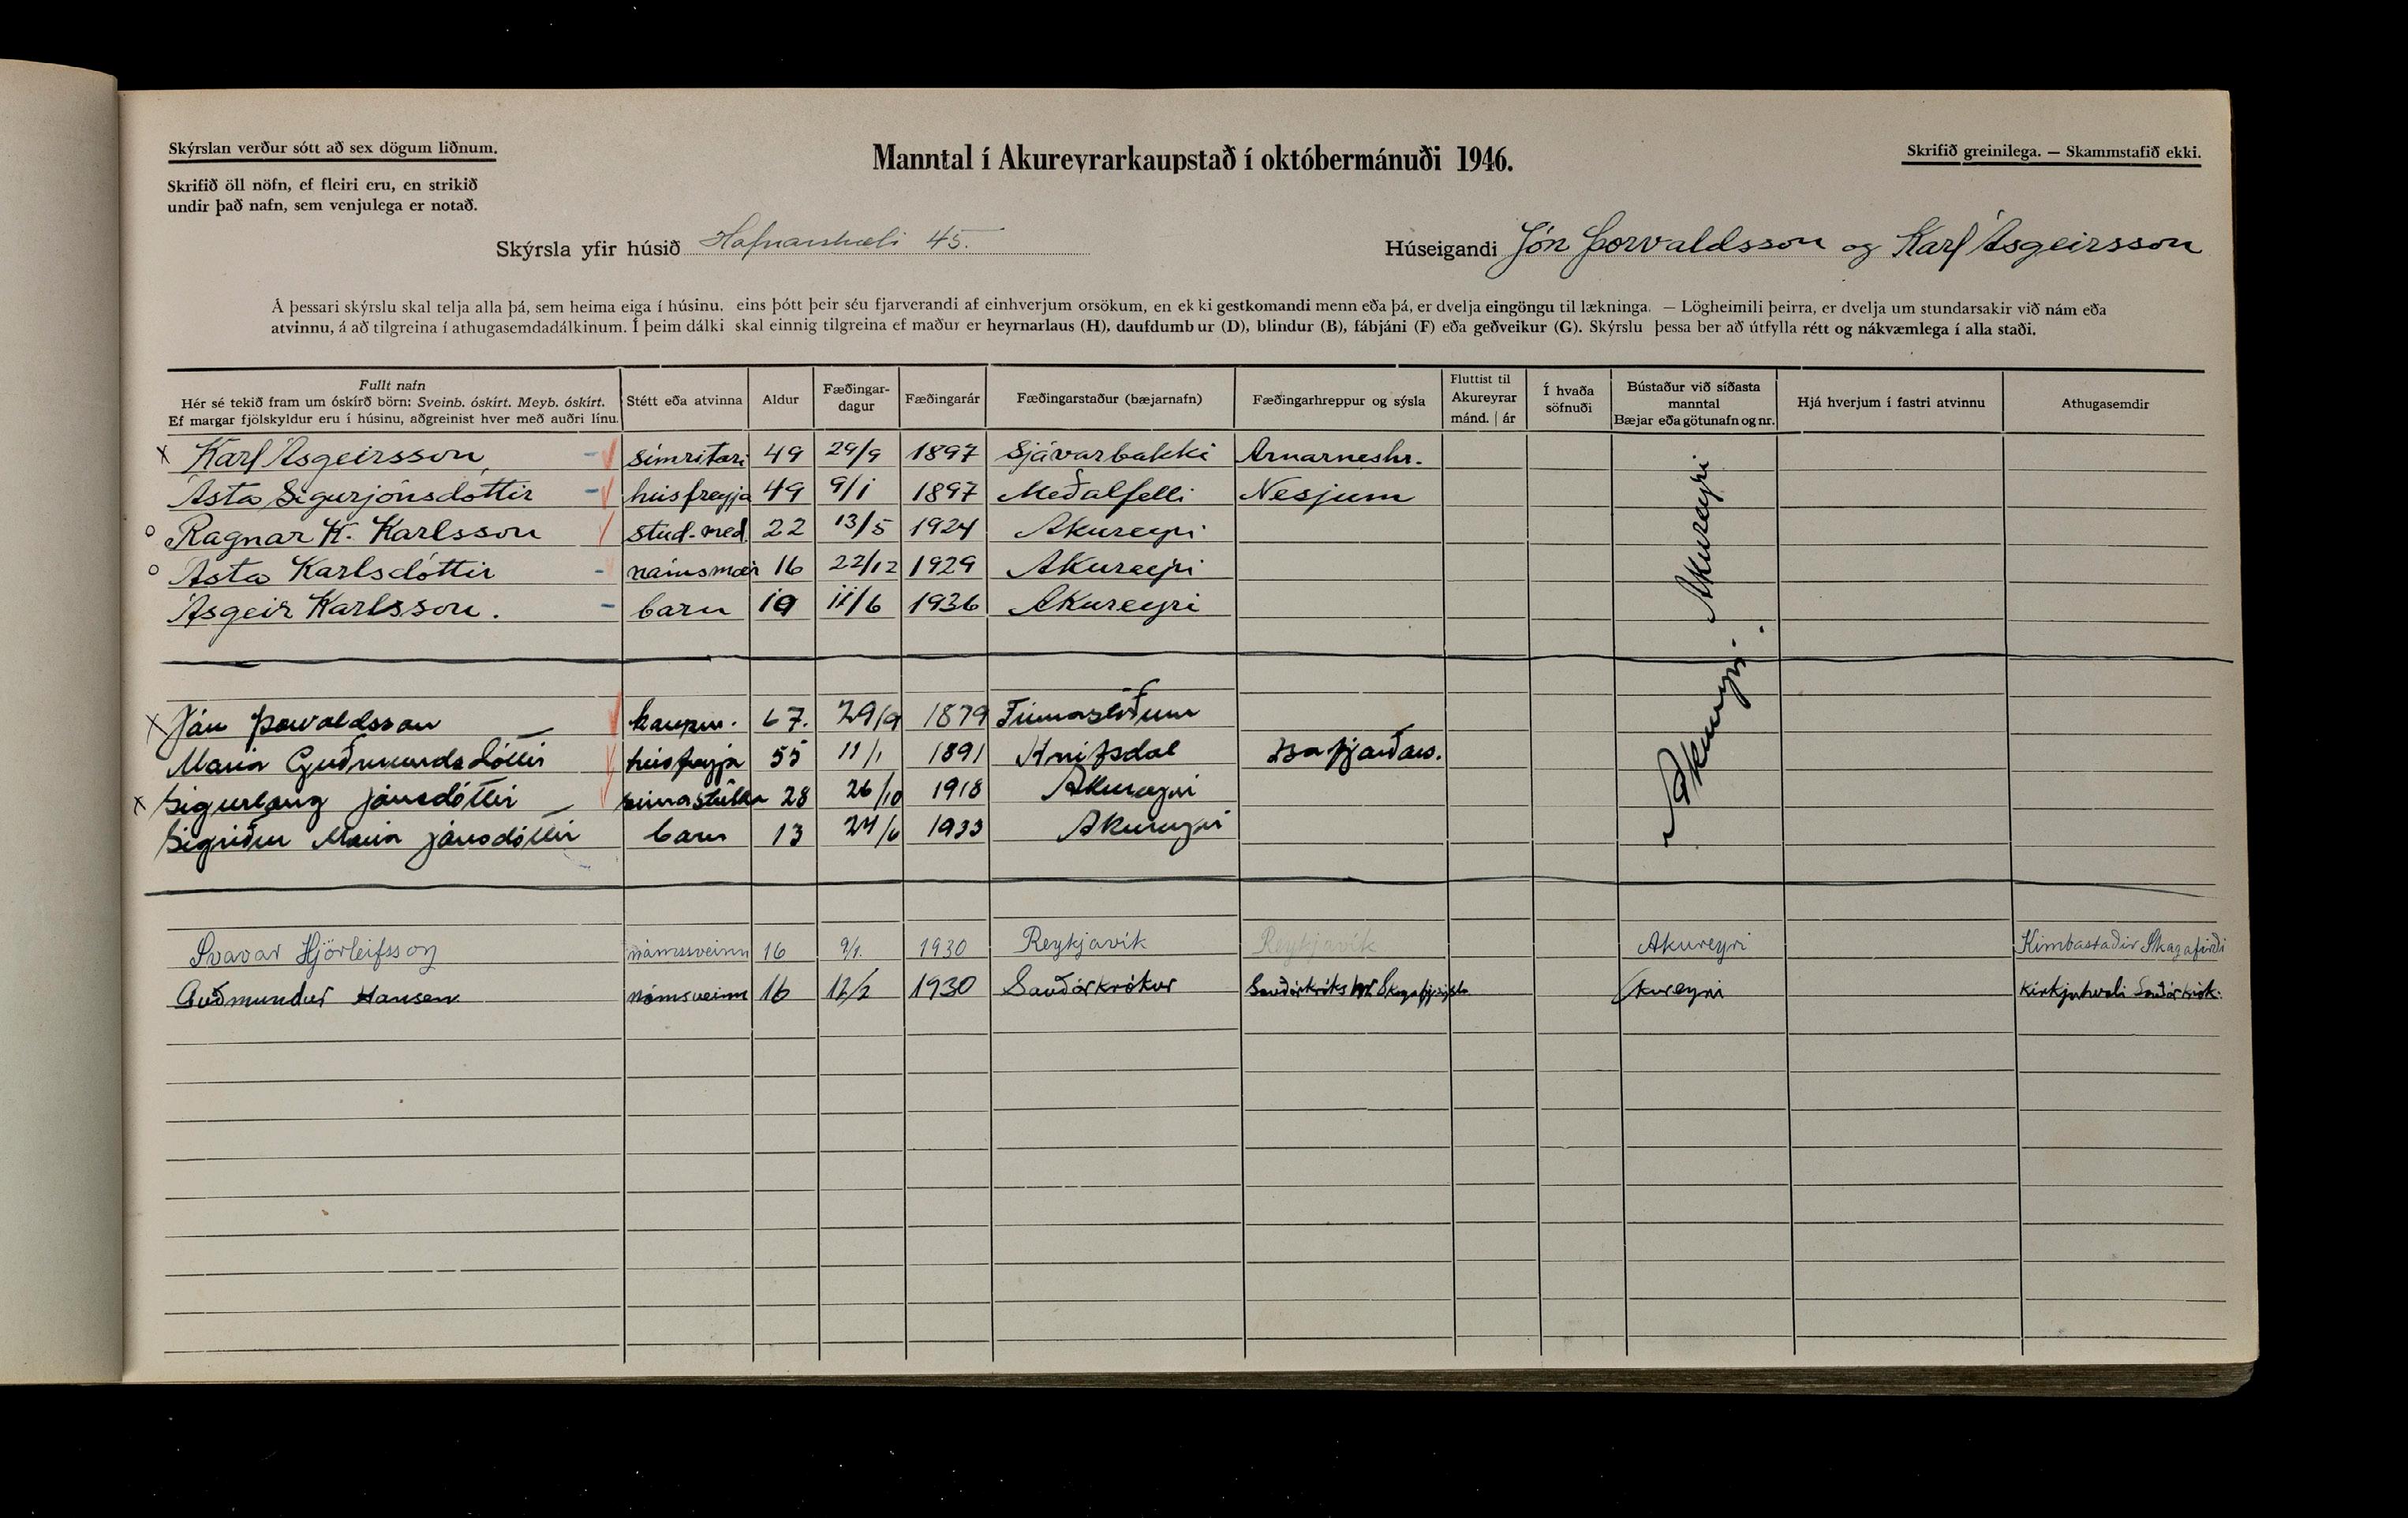 Skýrslan verður sótt að sex dögum liðnum.
Manntal í Akureyrarkaupstað í októbermánuði 1946.
Skrifið greinilega. — Skammstafið ekki.
Skrifið öll nöfn, ef fleiri eru, en strikið
undir það nafn, sem venjulega er notað.
Skýrsla yfir húsið Hafnarstræti 45.
Húseigandi Jón Þorvaldsson og Karl Ásgeirsson
Á þessari skýrslu skal telja alla þá, sem heima eiga í húsinu, eins þótt þeir séu fjarverandi af einhverjum orsökum, en ekki gestkomandi menn eða þá, er dvelja eingöngu til lækninga. — Lögheimili þeirra, er dvelja um stundarsakir við nám eða
atvinnu, á að tilgreina í athugasemdadálkinum. Í þeim dálki skal einnig tilgreina ef maður er heyrnarlaus (H), daufdumbur (D), blindur (B), fábjáni (F) eða geðveikur (G). Skýrslu þessa ber að útfylla rétt og nákvæmlega í alla staði.
Fullt nafn
Hér sé tekið fram um óskírð börn: Sveinb. óskírt. Meyb. óskírt.
Ef margar fjölskyldur eru í húsinu, aðgreinist hver með auðri línu.
Stétt eða atvinna
Aldur
Fæðingar-
dagur
Fæðingarár
Fæðingarstaður (bæjarnafn)
Fæðingarhreppur og sýsla
Fluttist til
Akureyrar
mánd. | ár
Í hvaða
söfnuði
Bústaður við síðasta
manntal
Bæjar eða götunafn og nr.
Hjá hverjum í fastri atvinnu
Athugasemdir
x Karl Ásgeirsson símritari 49 29/9 1897 Sjávarbakki Arnarneshr.
Ásta Sigurjónsdóttir húsfreyja 49 9/1 1897 Meðalfelli Nesjum
o Ragnar K. Karlsson stud. med. 22 13/5 1924 Akureyri
o Ásta Karlsdóttir námsmær 16 22/12 1929 Akureyri
Ásgeir Karlsson. barn 10 11/6 1936 Akureyri
Akureyri
x Jón Þorvaldsson kaupm. 67. 29/9 1879
María Guðmundsdóttir húsfreyja 55 11/1 1891 Hnífsdal Ísafjarðars.
x Sigurlaug Jónsdóttir símastúlka 28 26/10 1918 Akureyri
Sigríður María Jónsdóttir barn 13 24/6 1933 Akureyri
Akureyri.
Svavar Hjörleifsson námssveinn 16 9/1. 1930 Reykjavík Reykjavík Akureyri Kimbastaðir Skagafirði
Guðmundur Hansen námsveinn 16 12/2 1930 Sauðárkrókur Sauðárkróks Akureyri Kirkjuhvoli Sauðárkrók.